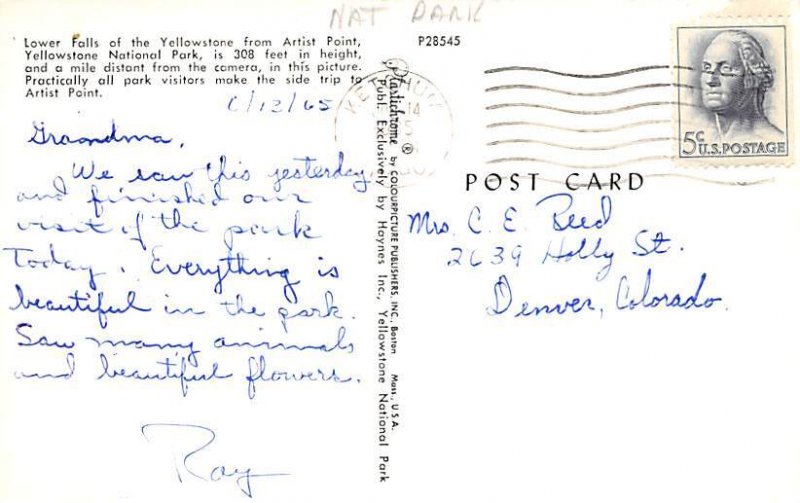 NAT PARK
Lower Falls of the Yellowstone from Artist Point,
Yellowstone National Park, is 308 feet in height,
and a mile distant from the camera, in this picture.
Practically all park visitors make the side trip to
Artist Point.
P28545
6/13/65
Graandma,
We saw this yesterday
and finished our
visit of the park
Today. Everything is
beautiful in the park.
Saw many animals
and beautiful flowers.
Ray
Plastichrome ® by COLOURPICTURE PUBLISHERS, INC. Boston Mass., U.S.A.
Publ. Exclusively by Haynes Inc., Yellowstone National Park
KETCHUM
14
5¢
U.S. POSTAGE
POST CARD
Mrs. C. E. Reed
2639 Holly St.
Denver, Colorado.